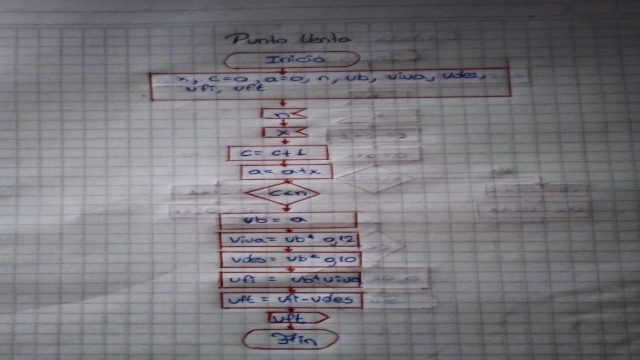 Punto Venta
Inicio
x, c=0, a=0, n, vb, viva, vdes,
vfi, vft
n
x
c= c+1
a= a+x
c<n
vb = a
viva= vb* 0,12
vdes= vb* 0,10
vfi = vb+viva
vft = vfi-vdes
vft
Fin